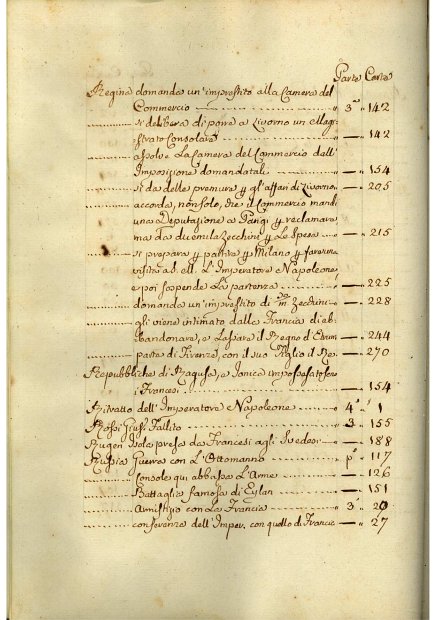 Parte Carte
Regina domanda un'imprestito alla Camera del
Commercio " 3ª 142
si delibera di porre a Livorno un Magi=
strato Consolare " — 142
assolve La Camera del Commercio dall'
Imposizione domandatali " — 154
si da delle premure p gl'affari di Livorno, " — 205
accorda, non solo, che il Commercio mandi
una Deputazione a Parigi p reclamare
ma da duemila Zecchini p Le Spese " — 215
si prepara p partire p Milano p far una
visita ad. ell. L'Imperatore Napoleone,
e poi sospende La partenza " — 225
domanda un'imprestito di Zecchini " — 228
gli viene intimato dalla Francia di ab=
bandonare, e Lassare il Regno d'Etruria " — 244
parte di Firenze, con il suo Figlio il Re " — 270
Repubbliche di Ragusa, e Ionica impossessatosene
i Francesi " — 154
Ritratto dell'Imperatore Napoleone " 4ª 1
Rossi Gius. Fallito " 3 155
Rugen Isola presa da Francesi agli Svedesi " — 188
Russia Guerra con L'Ottomanno " pª 117
Console qui abbassa L'Arme " — 126
Battaglia famosa di Eylau " — 151
Armistizio con La Francia " 3ª 20
conferenza dell'Imper. con quello di Francia " — 27